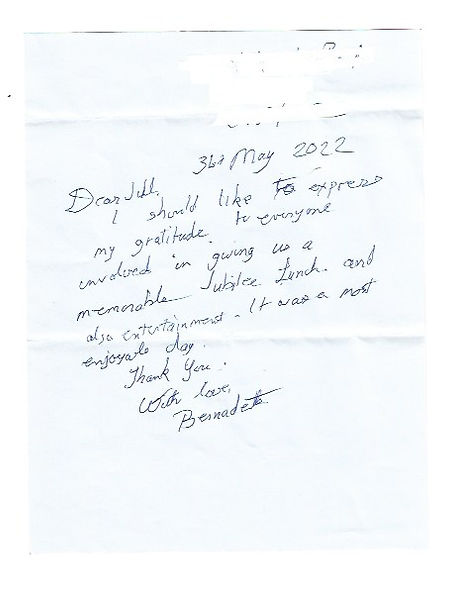 31st May 2022
Dear Jill,
I should like to express
my gratitude to everyone
involved in giving us a
memorable Jubilee Lunch and
also entertainment. It was a most
enjoyable day.
Thank you.
With love,
Bernadette